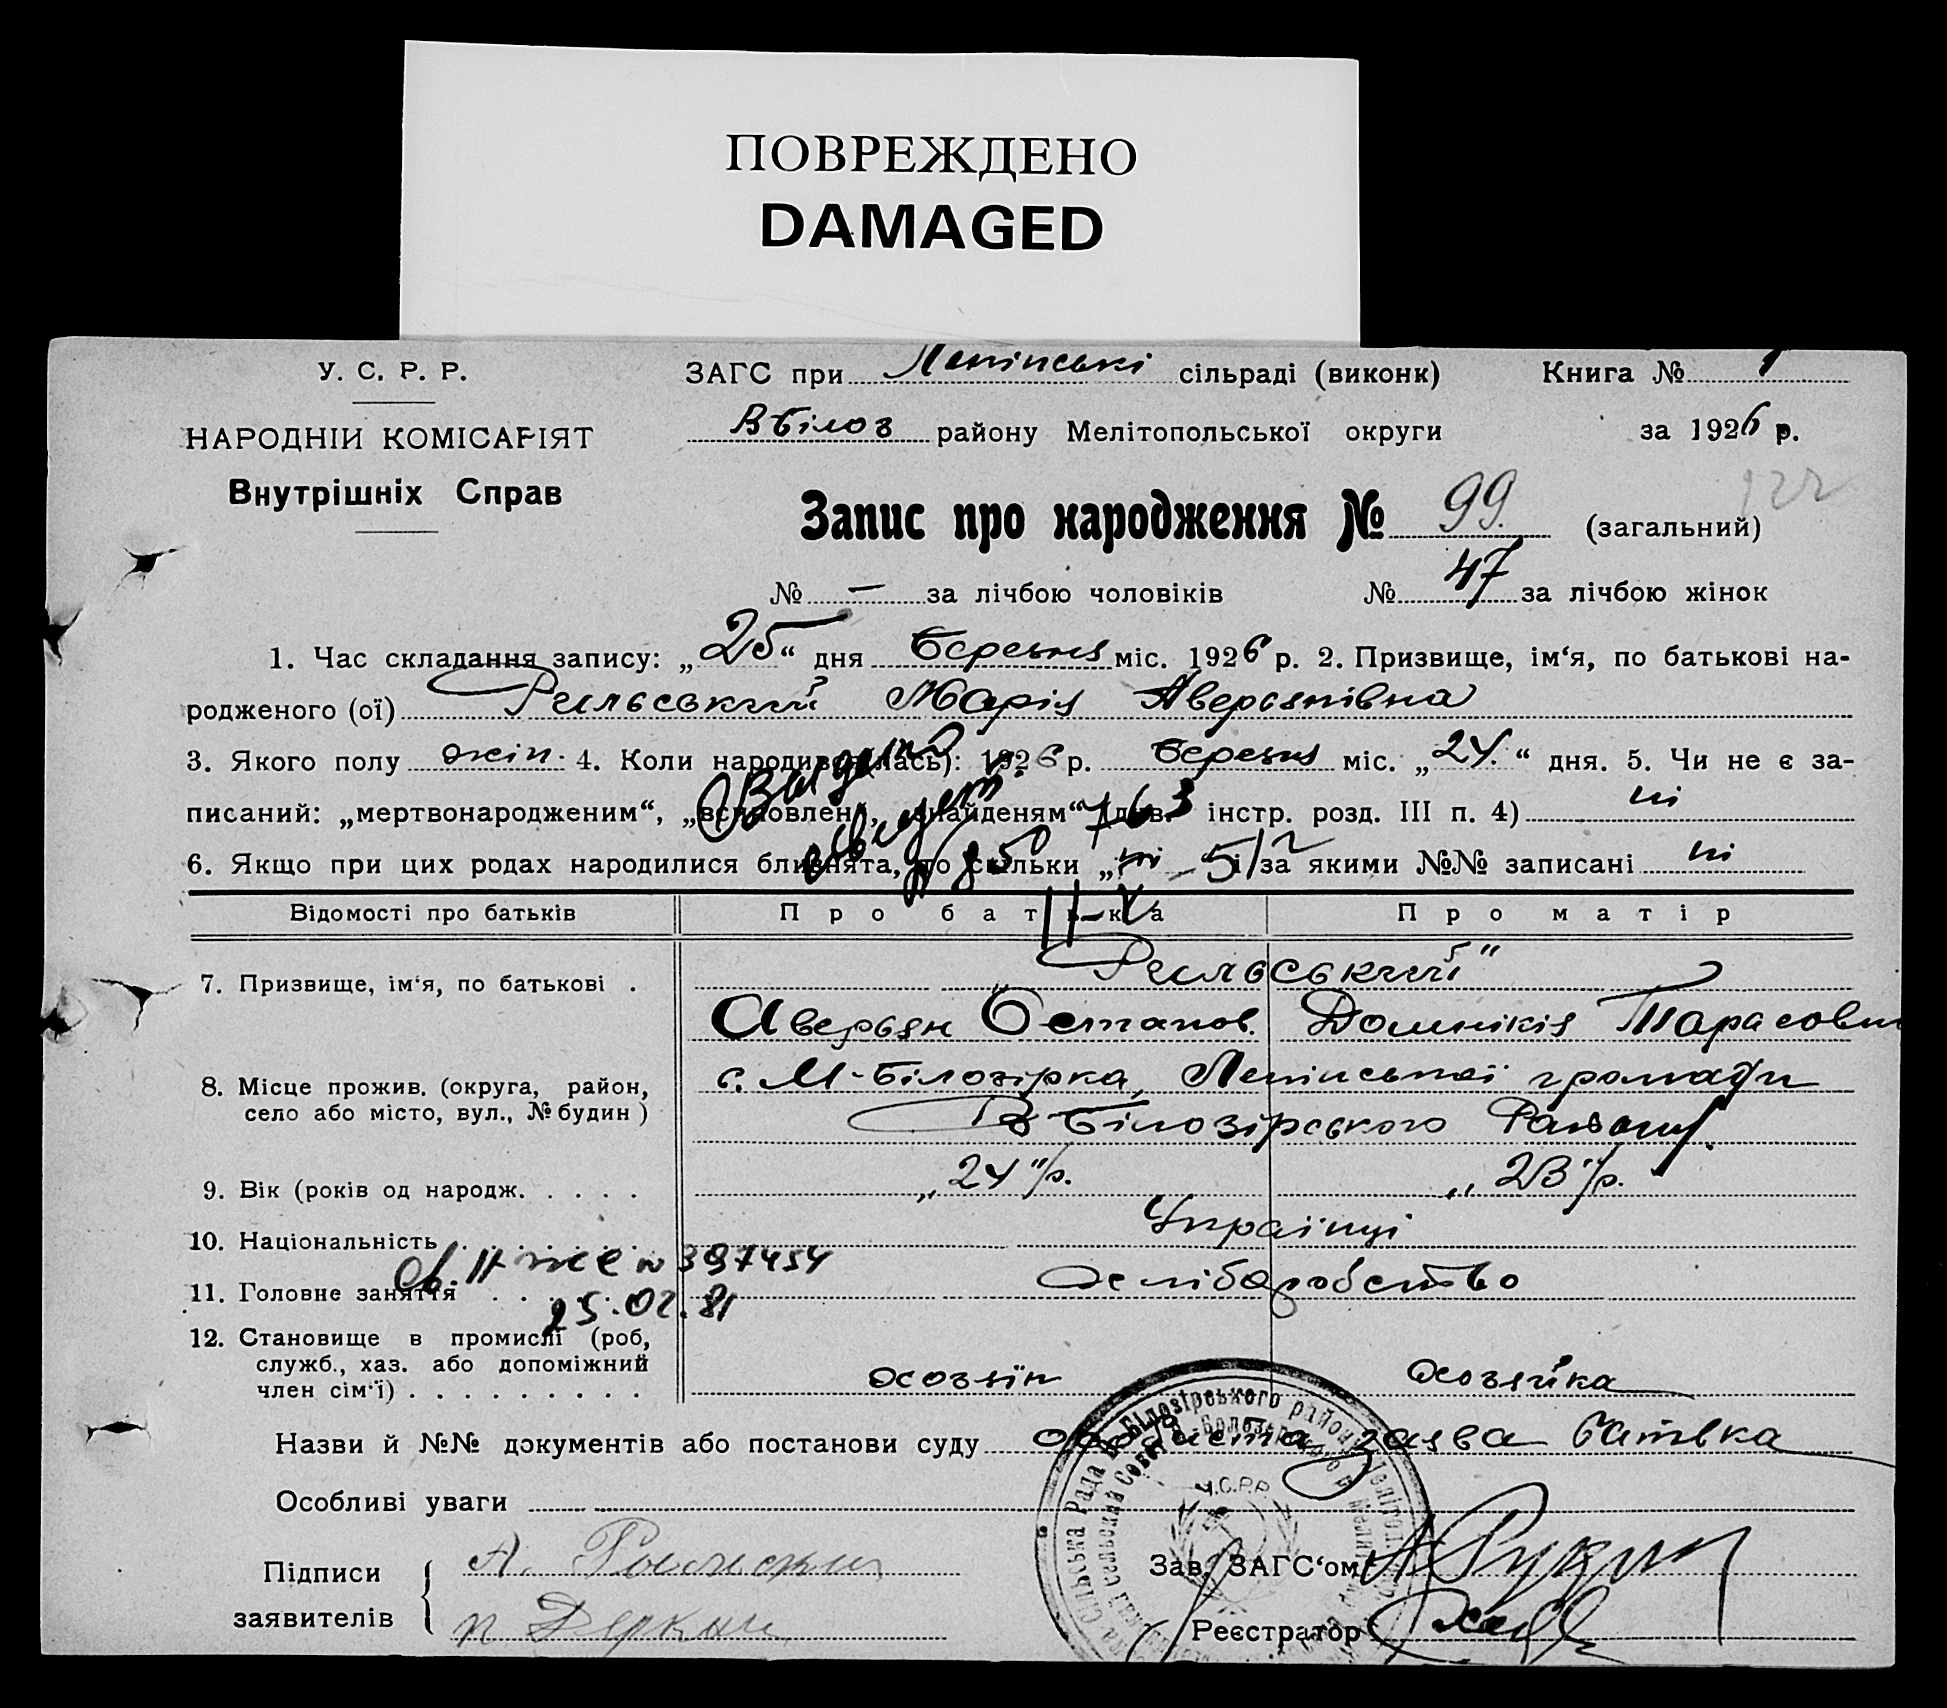 ПОВРЕЖДЕНО
DAMAGED
У. С. Р. Р.
ЗАГС при Ленінські сільраді (виконк) Книга № 1
НАРОДНІИ КОМІСАРІЯТ
В Білоз району Мелітопольської округи за 1926 р.
Внутрішніх Справ
122
Запис про народження № 99 (загальний)
№ — за лічбою чоловіків № 47 за лічбою жінок
1. Час складання запису: „25“ дня Березня міс. 1926 р. 2. Призвище, ім‘я, по батькові на-
родженого (ої) Рильський Марія Аверьянівна
3. Якого полу жін. 4. Коли народився(лась): 1926 р. Березня міс. „24.“ дня. 5. Чи не є за-
писаний: „мертвонародженим“, „всиновлен, знайденям“ (див. інстр. розд. III п. 4) ні
6. Якщо при цих родах народилися близнята, то скільки „ні і за якими №№ записані ні
Відомості про батьків Про батька Про матір
7. Призвище, ім‘я, по батькові . „Рильський“
Аверьян Остапов. Домнікія Тарасовн
8. Місце прожив. (округа, район, село або місто, вул., № будин) с. М-Білозірка, Ленінської громади
В Білозірського Району.
9. Вік (років од народж. . . . . „24“ р. „23“ р.
10. Національність Українці
св. II № 397454
11. Головне заняття хліборобство
25.02.81
12. Становище в промислі (роб,
служб., хаз. або допоміжний
член сім‘ї) . . . . . . . . . хозяїн хозяйка
Назви й №№ документів або постанови суду особиста заява батька
Особливі уваги
Підписи
заявителів
А. Рольский
п Деркач
Зав. ЗАГС‘ом
Реєстратор
У.С.Р.Р.